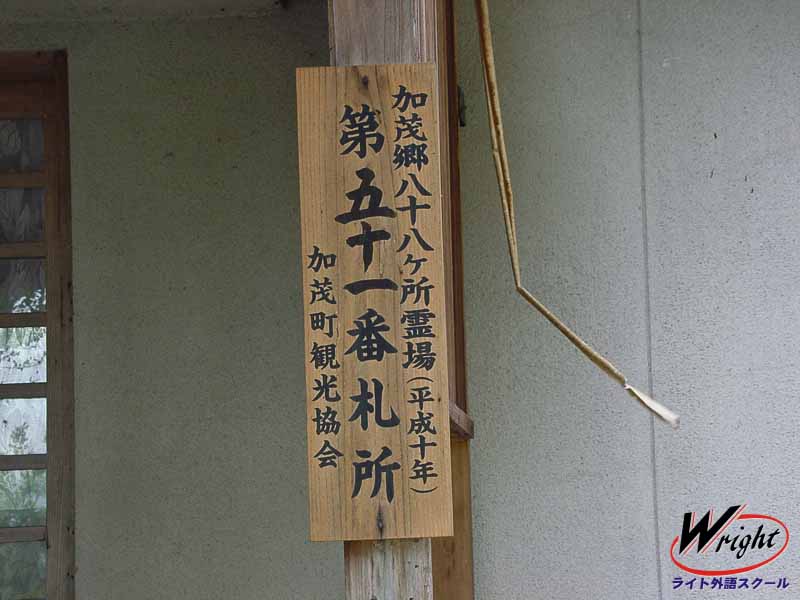 加茂郷八十八ヶ所霊場(平成十年)
第五十一番札所
加茂町観光協会
Wright
ライト外語スクール